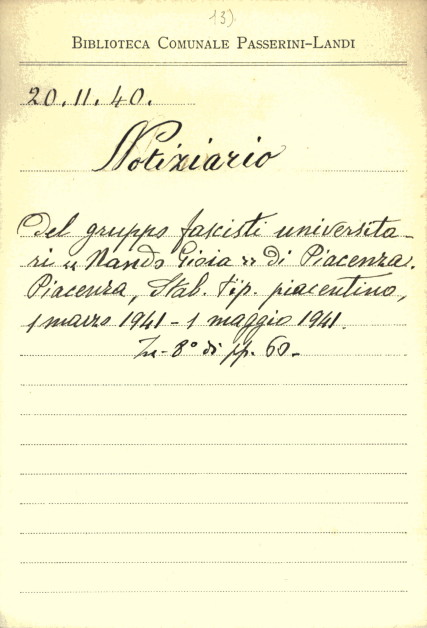 13)
BIBLIOTECA COMUNALE PASSERINI-LANDI
20.11.40.
Notiziario
Del gruppo fascisti universita-
ri « Nando Gioia » di Piacenza.
Piacenza, Stab. tip. piacentino,
1 marzo 1941 - 1 maggio 1941.
In-8° di pp. 60.-